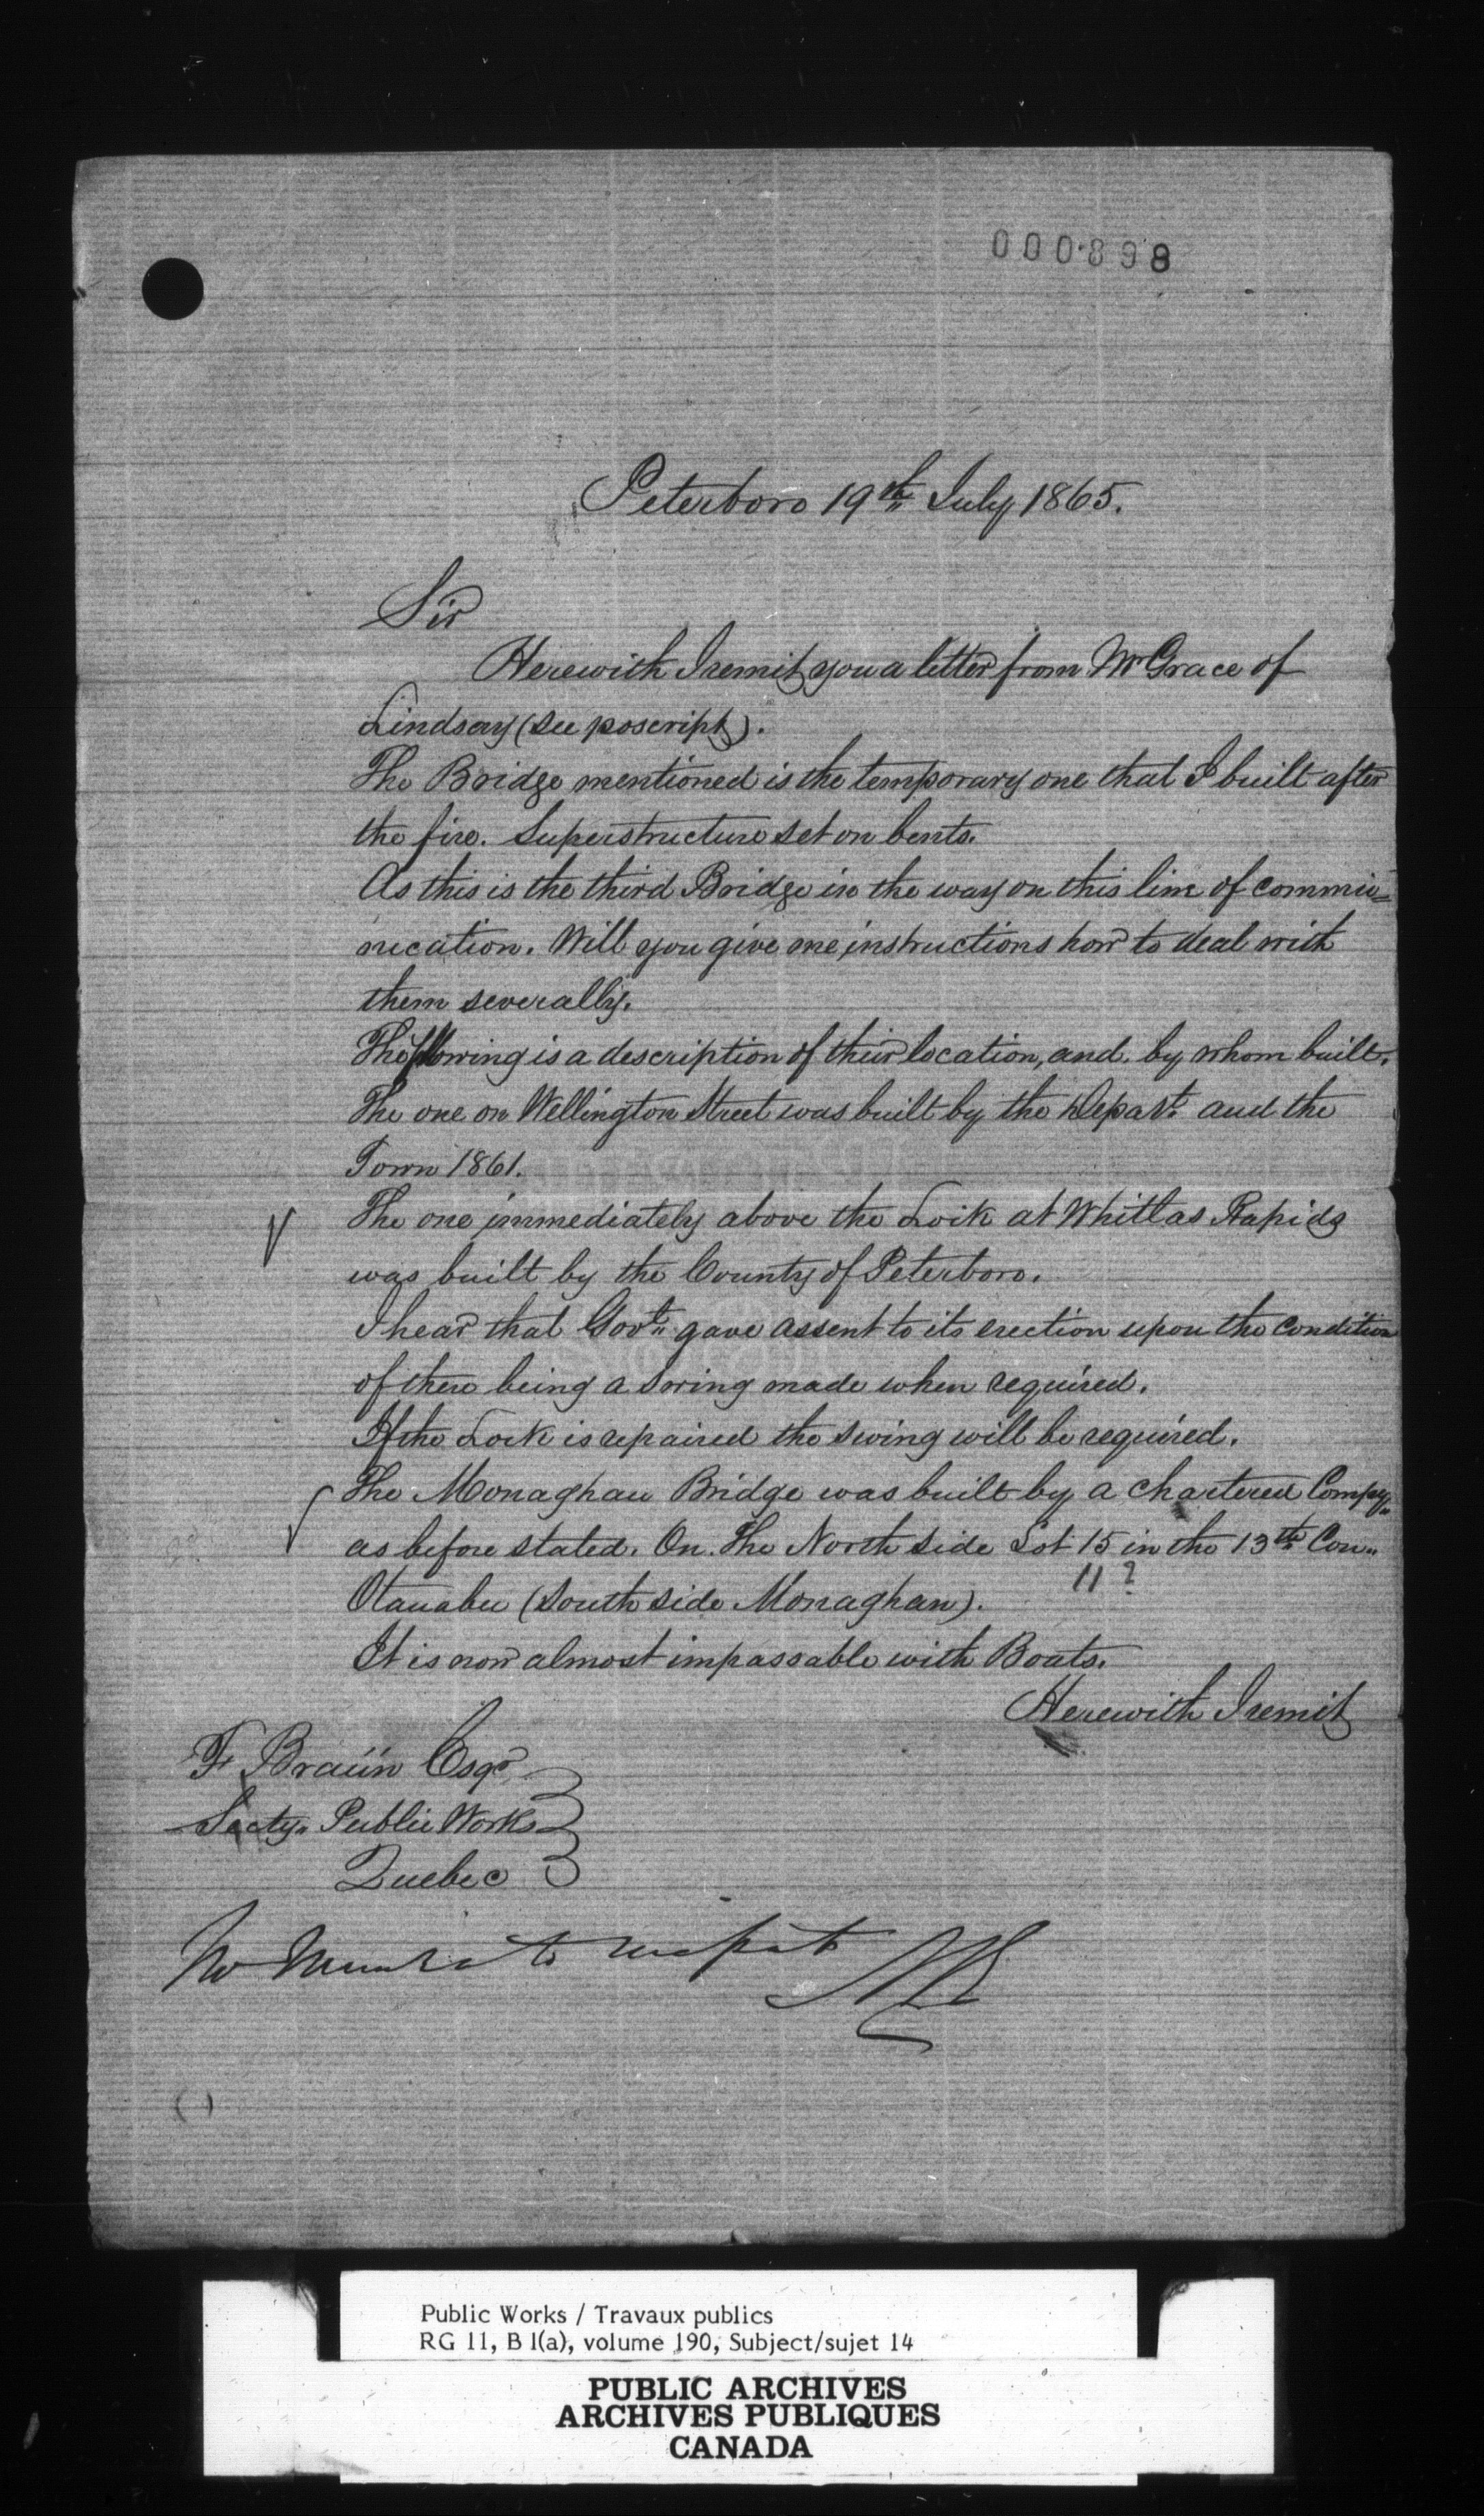 000898
Peterboro 19th July 1865.
Sir
Herewith I remit you a letter from Mr Grace of
Lindsay (see poscript).
The Bridge mentioned is the temporary one that I built after
the fire. Superstructure set on bents.
As this is the third Bridge in the way on this line of commu=
nication. Will you give me instructions how to deal with
them severally.
The following is a description of their location, and by whom built.
The one on Wellington Street was built by the Depart. and the
Town 1861.
The one immediately above the Lock at Whitlas Rapids
was built by the County of Peterboro.
I hear that Govt. gave assent to its erection upon the condition
of there being a swing made when required.
If the Lock is repaired the swing will be required.
The Monaghan Bridge was built by a chartered Compy.
as before stated. On the North side Lot 15 in the 13th Con.
11?
Otanabee (South side Monaghan).
It is now almost impassable with Boats.
Herewith I remit
F Braün Esqr
Secty. Public Works
Quebec
Public Works / Travaux publics
RG 11, B 1(a), volume 190, Subject/sujet 14
PUBLIC ARCHIVES
ARCHIVES PUBLIQUES
CANADA